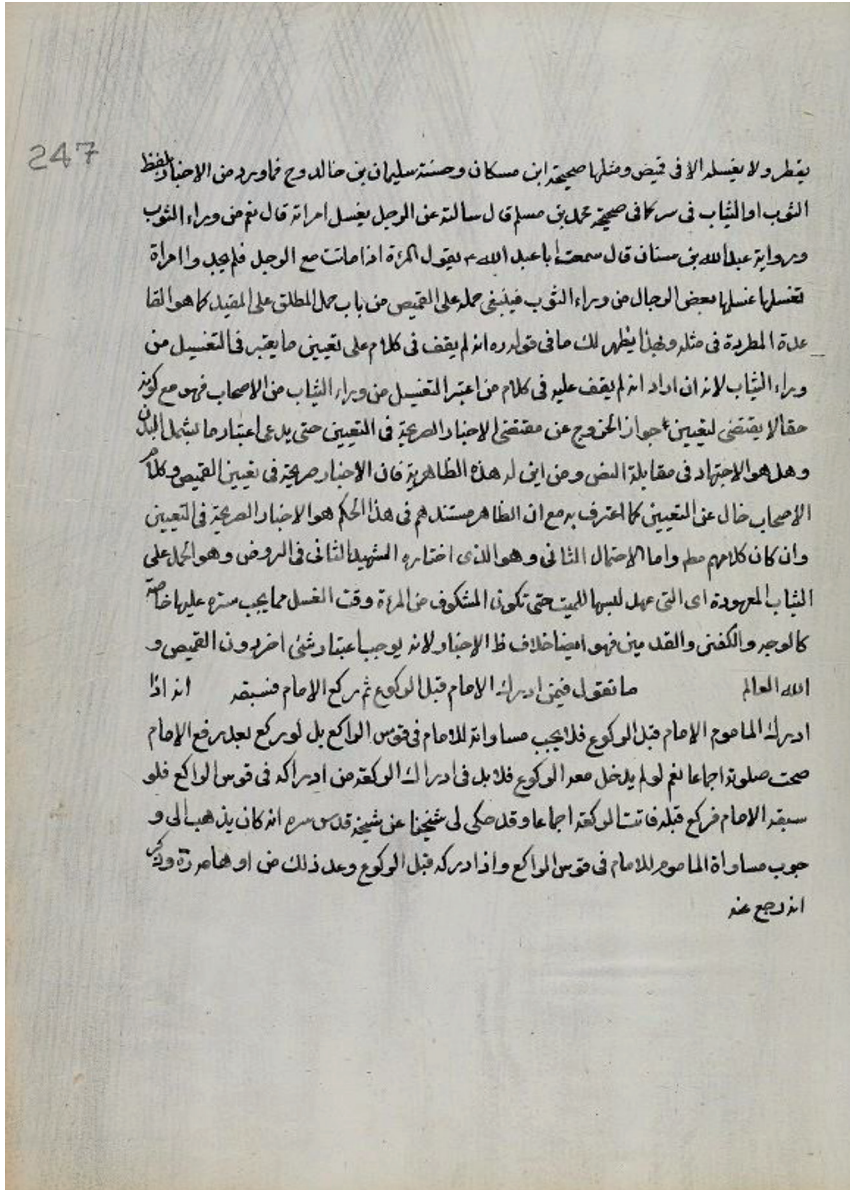 247
يقطر ولا يغسله الا فى قميص ومثلها صحيحة ابن مسكان وحسنة سليمان بن خالد وح فما ورد من الاخبار بلفظ
الثوب او الثياب فى كما فى صحيحة محمد بن مسلم قال سالته عن الرجل يغسل امراته قال نعم من وراء الثوب
ورواية عبد الله بن سنان قال سمعت ابا عبد الله ع يقول المرءة اذا ماتت مع الرجل فلم يجدوا امراة
تغسلها غسلها بعض الرجال من وراء الثوب فينبغى حمله على القميص من باب حمل المطلق على المقيد كما هو القا
عدة المطردة فى مثله وبهذا يظهر لك ما فى قوله ره انه لم يقف فى كلام على تعيين ما يعتبر فى التغسيل من
وراء الثياب لانه ان اراد انه لم يقف عليه فى كلام من اعتبر التغسيل من وراء الثياب من الاصحاب فهو مع كونه
حقا لا يقتضى لتعيين جواز الخروج عن مقتضى الاخبار الصريحة فى التعيين حتى يدعى اعتبار ما يشمل البدن
وهل هو الاجتهاد فى مقابلة النص ومن اين له هذه الظاهرية فان الاخبار صريحة فى تعيين القميص وكلام
الاصحاب خال عن التعيين كما اعترف به مع ان الظاهر مستندهم فى هذا الحكم هو الاخبار الصريحة فى التعيين
وان كان كلامهم مطم واما الاحتمال الثانى وهو الذى اختاره الشهيد الثانى فى الروض وهو الحمل على
الثياب المعهودة اى التى عهد لبسها للميت حتى تكون المكشوف من المرءة وقت الغسل مما يجب ستره عليها خاصة
كالوجه والكفين والقدمين فهو ايضا خلاف ظ الاخبار ولانه يوجب اعتبار شئ اخر دون القميص و
الله العالم ما تقول فيمن ادرك الامام قبل الركوع ثم ركع الامام فسبقه انه اذا
ادرك الماموم الامام قبل الركوع فلا يجب مساواته للامام فى قوس الراكع بل لو ركع بعد رفع الامام
صحت صلوته اجماعا نعم لو لم يدخل معه الركوع فلا بد فى ادراك الركعة من ادراكه فى قوس الراكع فلو
سبقه الامام فركع قبله فاتت الركعة اجماعا وقد حكى لى شيخنا عن شيخه قدس سره انه كان يذهب الى و
جوب مساواة الماموم للامام فى قوس الراكع واذا ادركه قبل الركوع وعد ذلك من اوهامه ره وذكر
انه رجع عنه